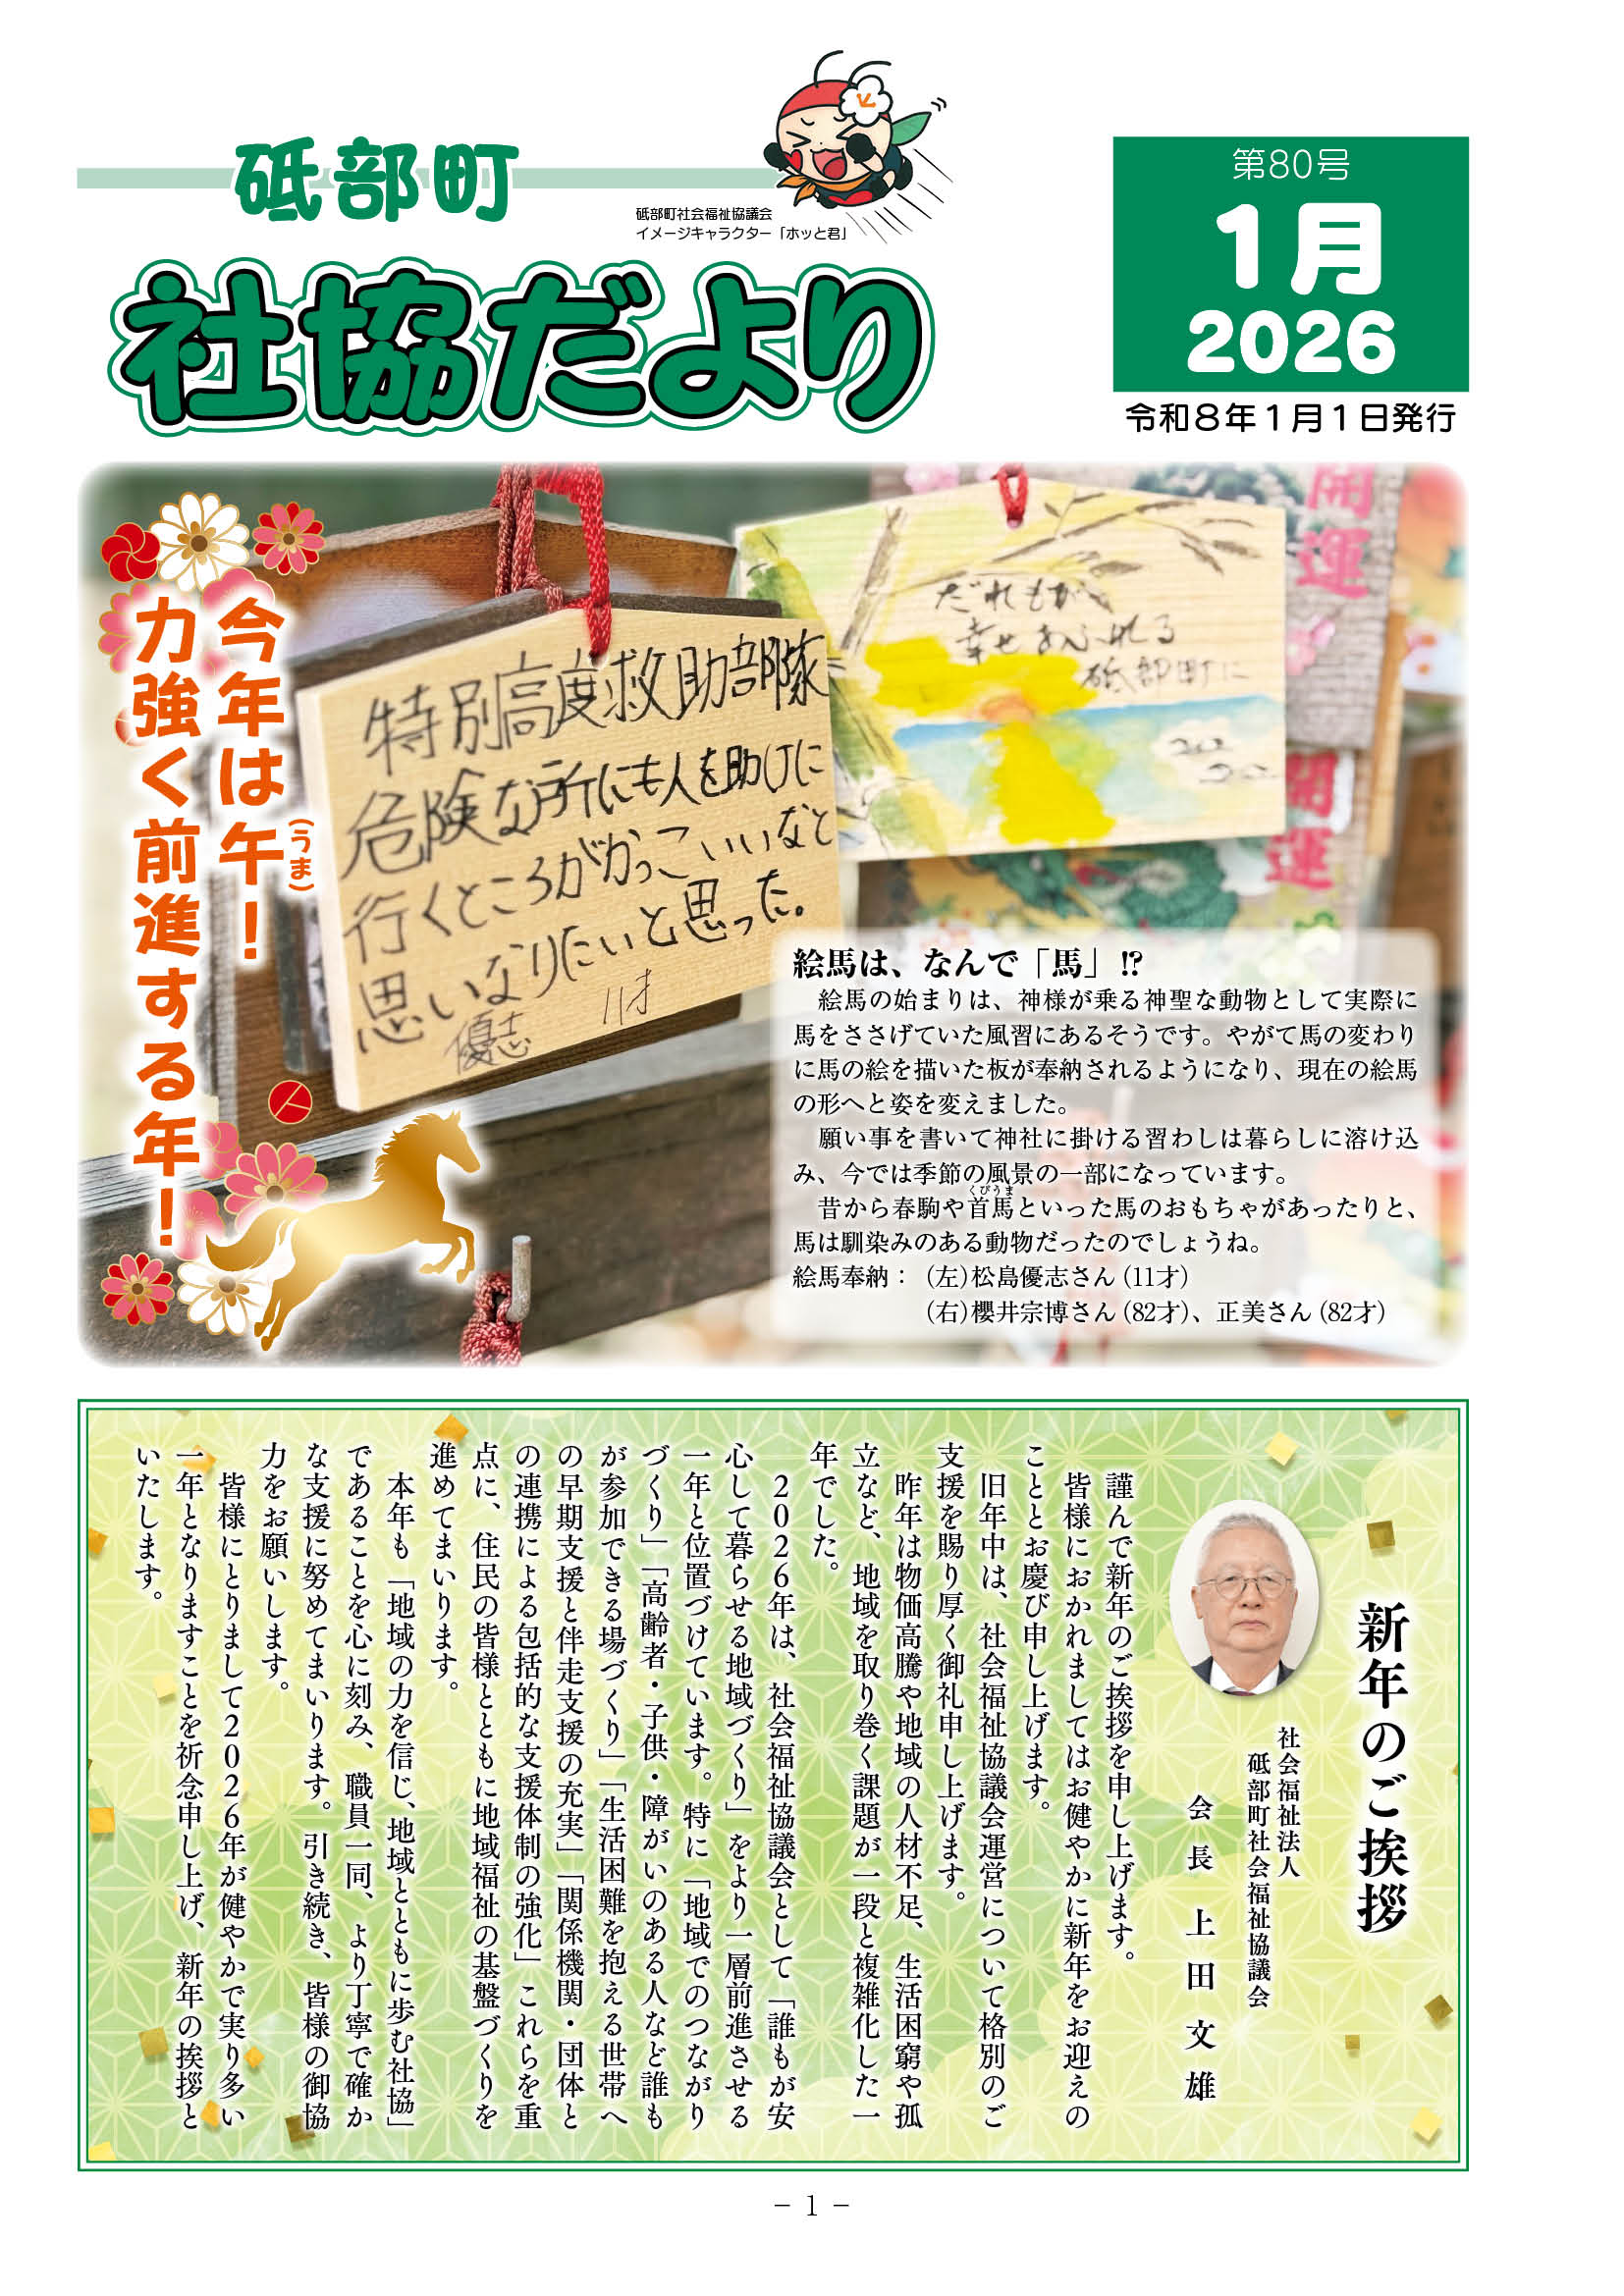 砥部町
社協だより
砥部町社会福祉協議会
イメージキャラクター「ホッと君」
第80号
1月
2026
令和8年1月1日発行
今年は午！
（うま）
力強く前進する年！
特別高度救助部隊
危険な所にも人を助けに
行くところがかっこいいなと
思いなりたいと思った。
優志 11才
だれもが
幸せあふれる
砥部町に
開運
開運
絵馬は、なんで「馬」!?
絵馬の始まりは、神様が乗る神聖な動物として実際に
馬をささげていた風習にあるそうです。やがて馬の変わり
に馬の絵を描いた板が奉納されるようになり、現在の絵馬
の形へと姿を変えました。
願い事を書いて神社に掛ける習わしは暮らしに溶け込
み、今では季節の風景の一部になっています。
くびうま
昔から春駒や首馬といった馬のおもちゃがあったりと、
馬は馴染みのある動物だったのでしょうね。
絵馬奉納：（左）松島優志さん（11才）
（右）櫻井宗博さん（82才）、正美さん（82才）
新年のご挨拶
社会福祉法人
砥部町社会福祉協議会
会長 上田文雄
謹んで新年のご挨拶を申し上げます。
皆様におかれましてはお健やかに新年をお迎えの
こととお慶び申し上げます。
旧年中は、社会福祉協議会運営について格別のご
支援を賜り厚く御礼申し上げます。
昨年は物価高騰や地域の人材不足、生活困窮や孤
立など、地域を取り巻く課題が一段と複雑化した一
年でした。
2026年は、社会福祉協議会として「誰もが安
心して暮らせる地域づくり」をより一層前進させる
一年と位置づけています。特に「地域でのつながり
づくり」「高齢者・子供・障がいのある人など誰も
が参加できる場づくり」「生活困難を抱える世帯へ
の早期支援と伴走支援の充実」「関係機関・団体と
の連携による包括的な支援体制の強化」これらを重
点に、住民の皆様とともに地域福祉の基盤づくりを
進めてまいります。
本年も「地域の力を信じ、地域とともに歩む社協」
であることを心に刻み、職員一同、より丁寧で確か
な支援に努めてまいります。引き続き、皆様の御協
力をお願いします。
皆様にとりまして2026年が健やかで実り多い
一年となりますことを祈念申し上げ、新年の挨拶と
いたします。
－ 1 －